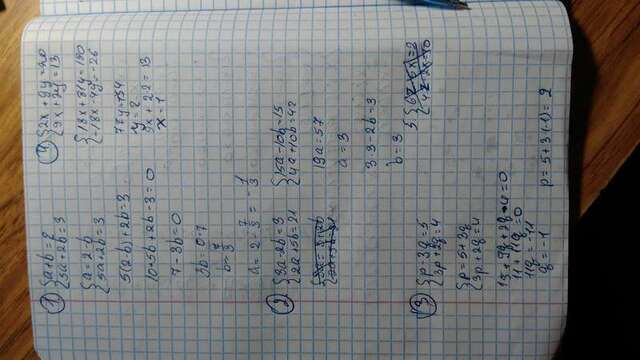 1) {a+b=2
{5a+2b=3
{a=2-b
{5a+2b=3
5(2-b)+2b=3
10-5b+2b-3=0
7-3b=0
3b=0-7
b=7/3
a=2-7/3=-1/3
2) {3a-2b=3
{2a+5b=21
{15a-10b=15
{4a+10b=42
19a=57
a=3
3·3-2b=3
b=3
3) {p-3q=5
{3p+2q=4
{p=5+3q
{3p+2q=4
11+11q=0
11q=-11
q=-1
p=5+3(-1)=2
4) {2x+9y=20
{9x+2y=13
{18x+81y=180
{-18x-4y=-26
77y=154
y=2
9x+2·2=13
x=1
5